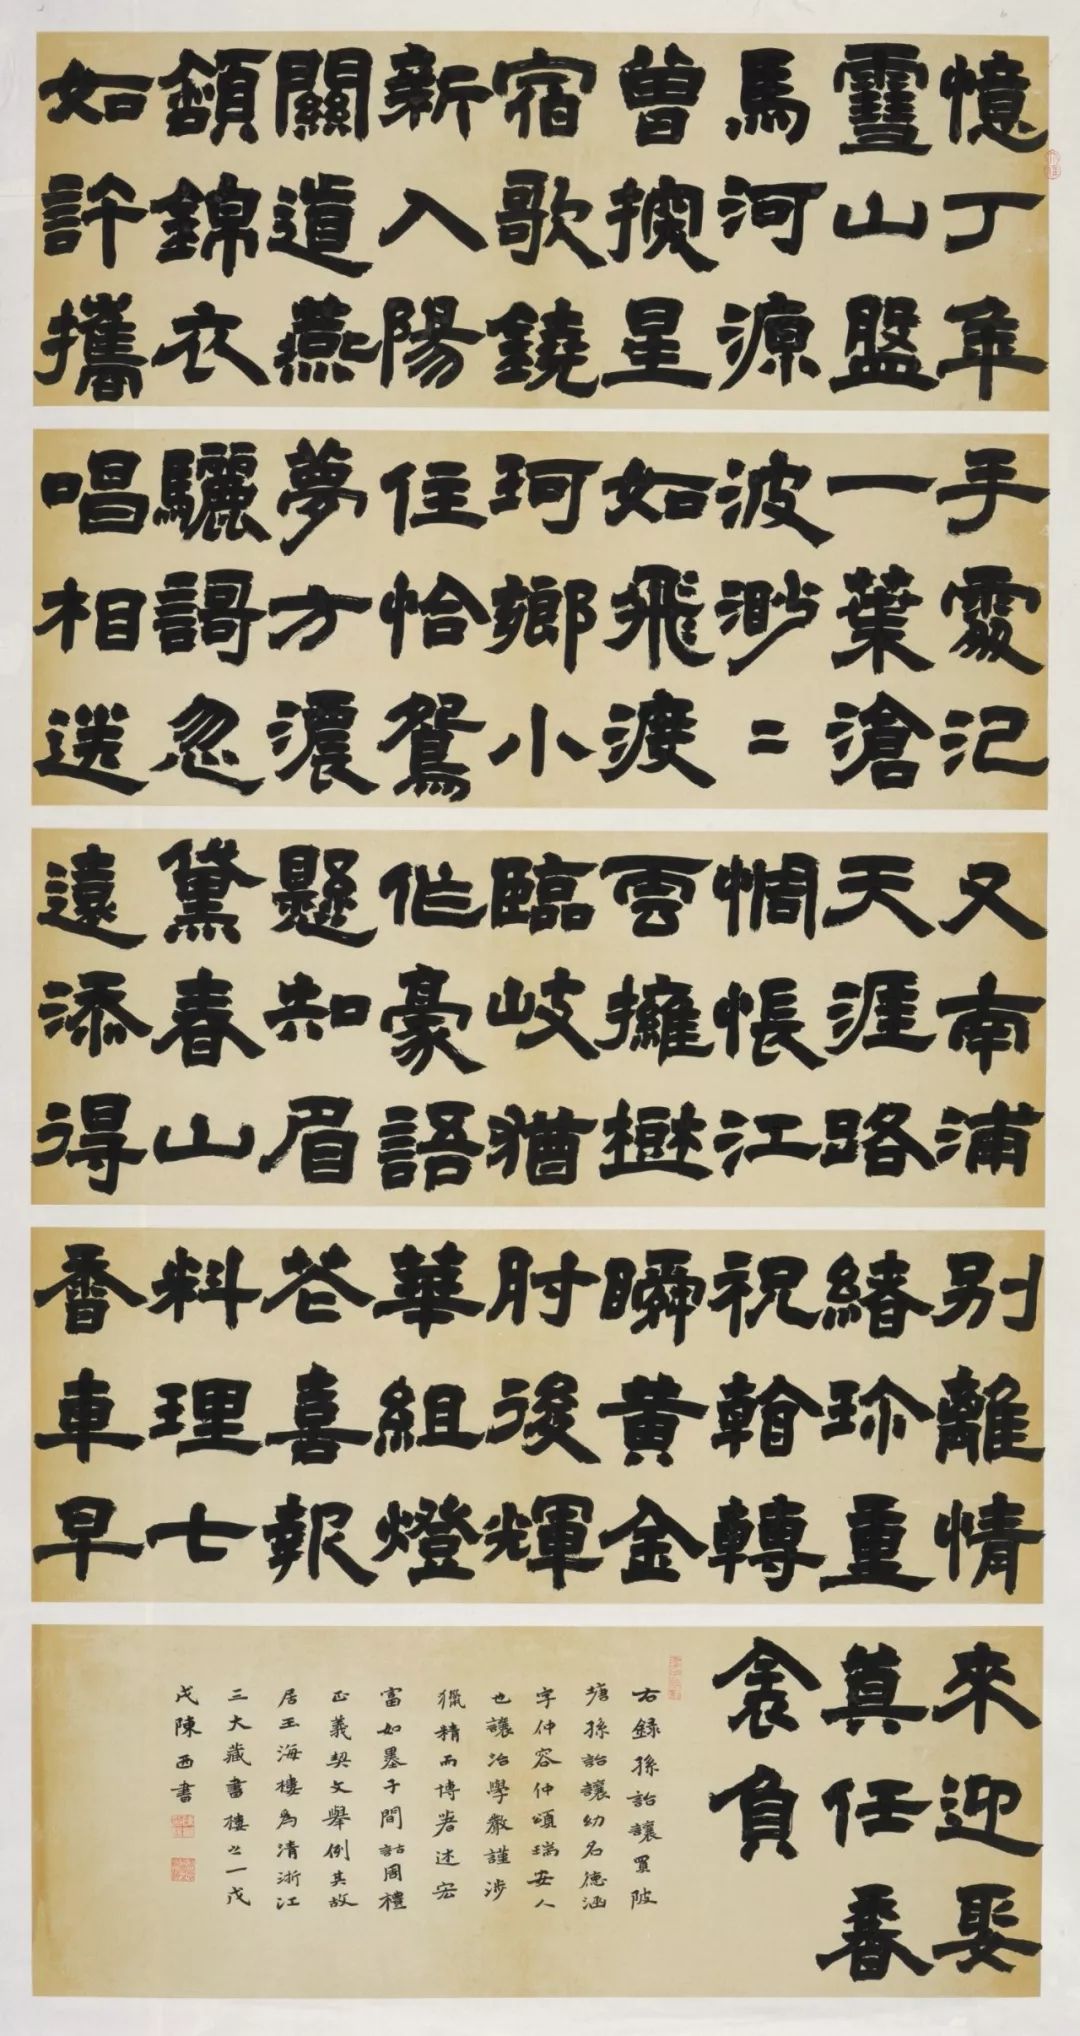 憶丁年
靈山盤
馬河源
曾星
宿歌鐃
新入陽
關道燕
頷錦衣
如許攜
手處記
一葉滄
波渺〻
如飛渡
珂鄉小
住恰鴛
夢方濃
驪謌忽
唱相送
又南浦
天涯路
惆悵江
雲擁
臨岐猶
作豪語
懸知眉
黛春山
遠添得
别離情
緒珍重
祝轉
瞬黄金
肘後輝
華組燈
花喜報
料理七
香車早
來迎娶
真任春
衾負
右錄孫詒讓買陂
塘孫詒讓幼名德涵
字仲容仲頌瑞安人
也讓治學嚴謹涉
獵精而博著述宏
富如墨子間詁周禮
正義契文舉例其故
居玉海樓為清浙江
三大藏書樓之一戊
戌陳西書